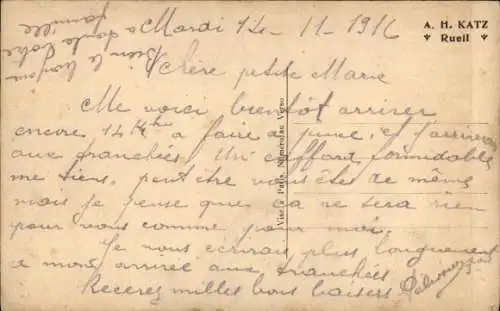 Mardi 14-11-1916
A. H. KATZ
Rueil
Bien le bonjour
a toute votre
famille
Chère petite Marie
Me voici bientôt arriver
encore 14 hre a faire a pine et j'arriverai
aux tranchées. Un caffard formidable
me tiens. peut être vous êtes de même
mais je pense que ca ne sera rien
pour vous comme pour moi.
Je vous ecrirais plus longuement
a mon arrivée aux tranchées
Recevez milles bons baisers
Visé Paris. Numéro au Verso